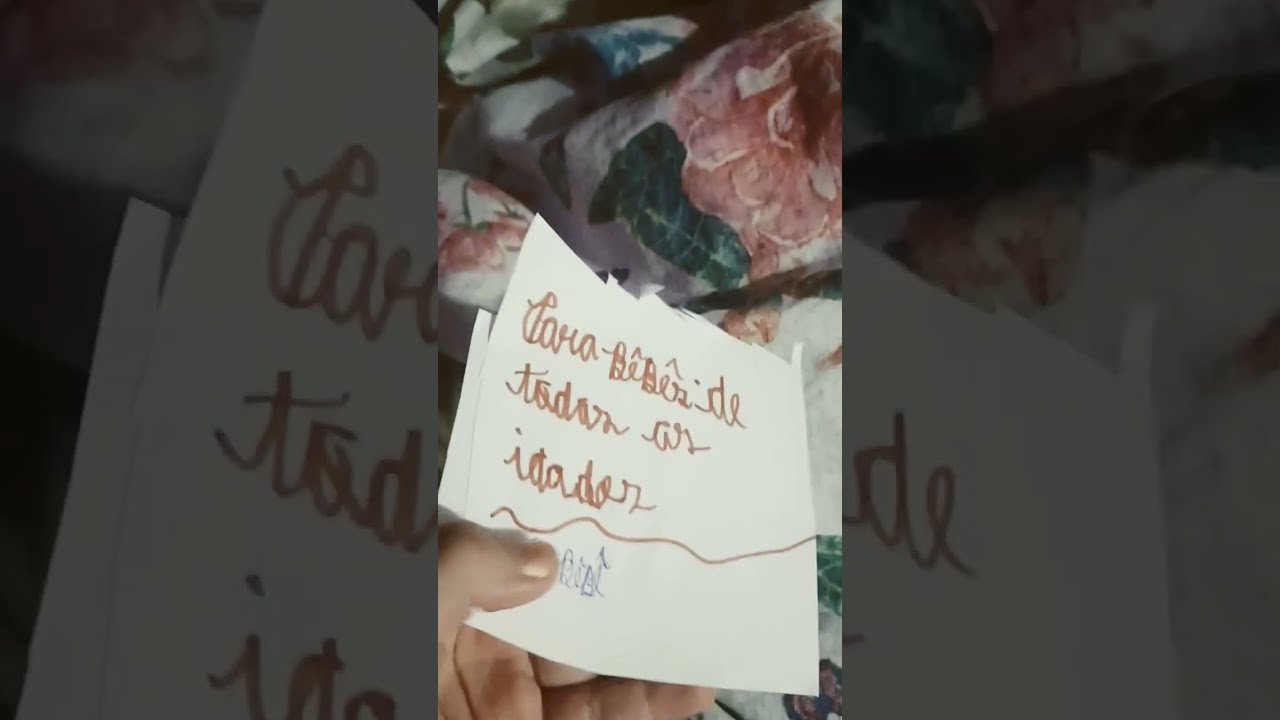 Para Bêbês de
todas as
idades